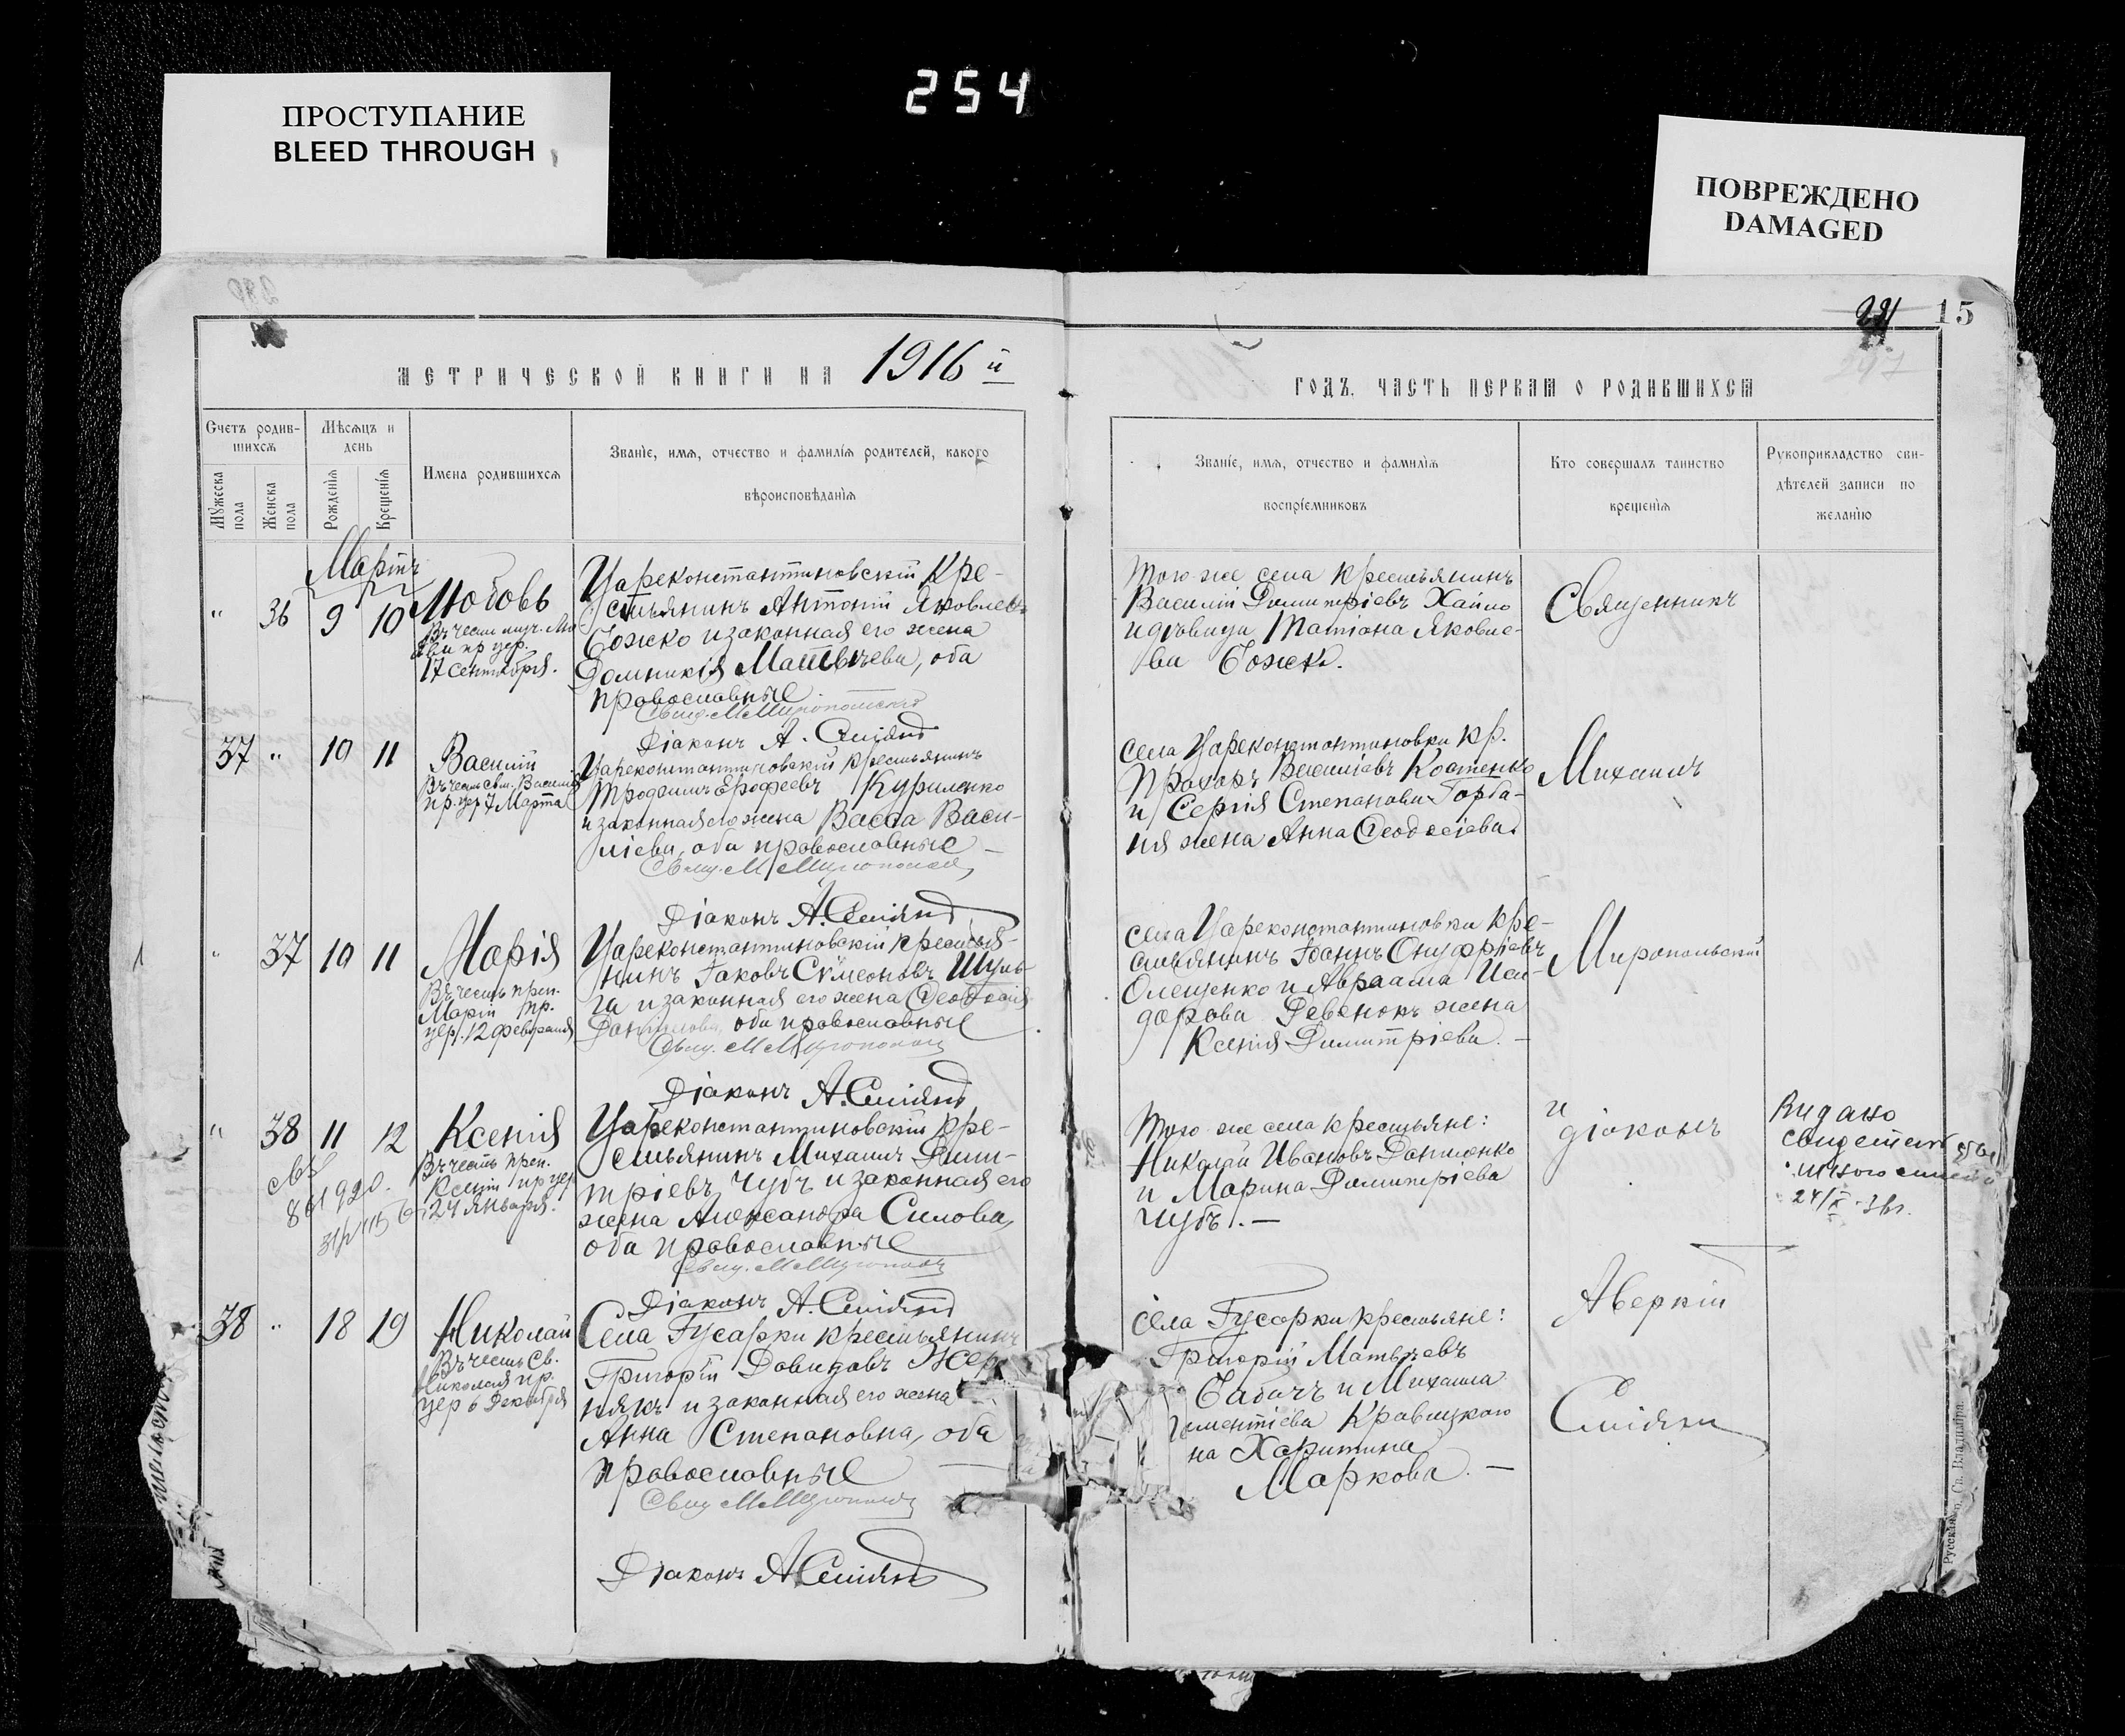 254
ПРОСТУПАНИЕ
BLEED THROUGH
ПОВРЕЖДЕНО
DAMAGED
15
МЕТРИЧЕСКОЙ КНИГИ НА 1916 й
ГОДЪ, ЧАСТЬ ПЕРВАЯ О РОДИВШИХСЯ
Счетъ родив-
шихся
Мужеска
пола
Женска
пола
Мѣсяцъ и
день
Рожденія
Крещенія
Имена родившихся
Званіе, имя, отчество и фамилія родителей, какого
вѣроисповѣданія
Званіе, имя, отчество и фамилія
воспріемниковъ
Кто совершалъ таинство
крещенія
Рукоприкладство сви-
дѣтелей записи по
желанію
Мартъ
" 36 9 10 Любовь
Въ честь муч. Лю
бви пр. цер.
17 Сентября.
Цареконстантиновскій Кре-
стьянинъ Антоній Яковлевъ
Божко и законная его жена
Домникія Матвѣева, оба
православные
Діаконъ А.
Того же села крестьянинъ
Василій Димитріевъ Хайло
и дѣвица Татіана Яковле-
ва Божко.
Священникъ
37 " 10 11 Василий
Въ честь свм. Василія
пр. цер. 7 Марта
Цареконстантиновскій крестьянинъ
Трофимъ Ерофеевъ Куриленко
и законная его жена Васса Васи-
ліева, оба православные
села Цареконстантиновки кр.
Прохоръ Василіевъ Костенко
и Сергія Степанова Горба-
ня жена Анна Ѳеодосіева.
Михаилъ
" 37 10 11 Марія
Въ честь преп.
Маріи пр.
цер. 12 февраля
Діаконъ А.
Цареконстантиновскій крестья-
нинъ Іаковъ Сѵмеоновъ Шуль-
га и законная его жена Ѳеодосія
Даніилова, оба православные
села Цареконстантиновки кре-
стьянинъ Іоаннъ Онуфріевъ
Олещенко и Авраама Иси-
дорова Ревенокъ жена
Ксенія Димитріева.
Миропольскій
" 38 11 12 Ксенія
Въ честь преп.
Ксеніи пр. цер.
24 Января.
Діаконъ А.
Цареконстантиновскій кре-
стьянинъ Михаилъ Дими-
тріевъ Чубъ и законная его
жена Александра Силова,
оба православные
Того же села крестьяне:
Николай Ивановъ Даниленко
и Марина Димитріева
Чубъ.
и
діаконъ
Видано
24/X 36г.
38 " 18 19 Николай
Въ честь Св.
Николая пр.
цер. 6 Декабря
Діаконъ А.
Села Гусарки крестьянинъ
Григорій Давидовъ Жер
някъ и законная его жена
Анна Степановна, оба
православные
села Гусарки крестьяне:
Григорій Матвѣевъ
Бабичъ и Михаила
Кравицкого
на Харитина
Маркова.
Аверкій
Діаконъ А.